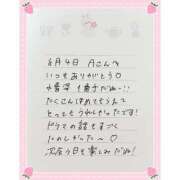 8月4日 Aさんへ
いつもありがとう♡
水書洋子菓子だぁー!!
たくさんほめてもらえて
とってもうれしかったです!
ドラマの話もすごく
たのしかった〜♡
次会う日も楽しみだね!